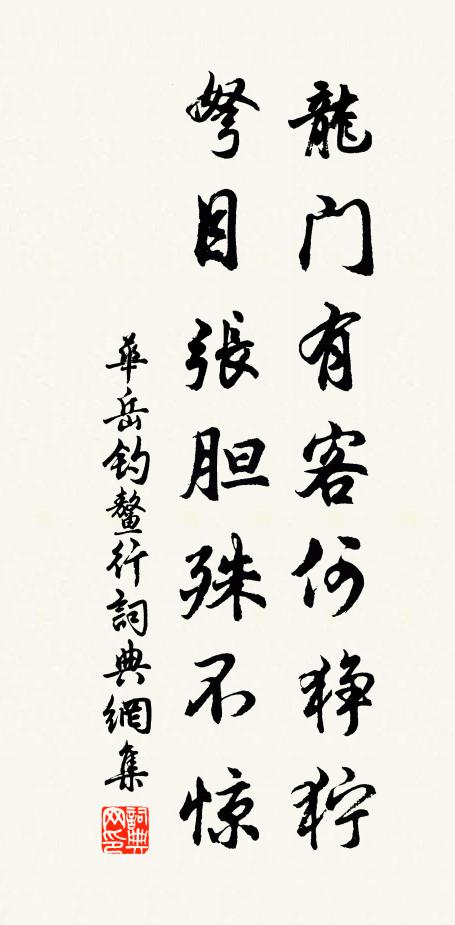 龍门有客何狰狞
弩目張胆殊不惊
華岳钓鳌行詞典網集
詞典网印